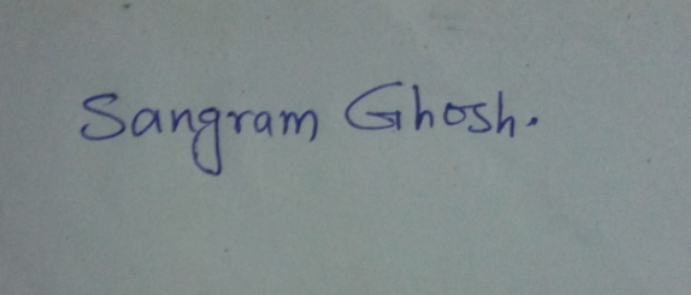 Sangram Ghosh.